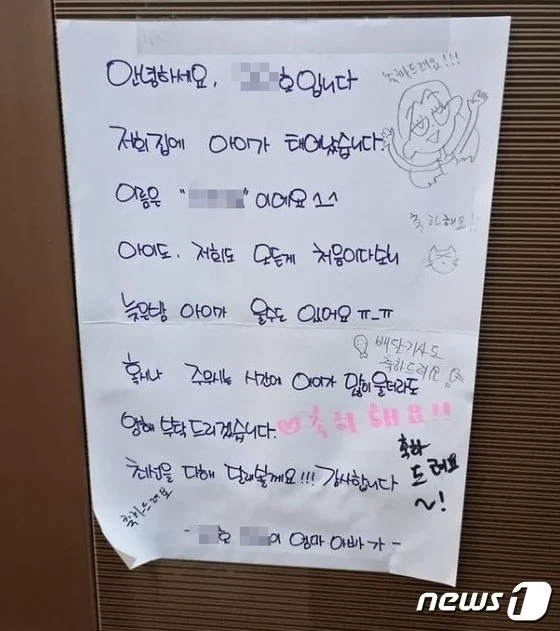 안녕하세요, 호입니다
축하드려요!!!
저희집에 아이가 태어났습니다
이름은 " " 이에요 ^_^
축하해요!!
아이도, 저희도 모든게 처음이다보니
늦은밤 아이가 울수도 있어요 ㅠ_ㅠ
배달기사도
축하드려요
혹시나 주무시는 시간에 아이가 많이 울더라도
양해 부탁드리겠습니다.
♡축하해요!!
축하
드려요
~!
최선을 다해 달래볼게요!!! 감사합니다
축하드려요
- 호 이 엄마 아빠가 -
news1